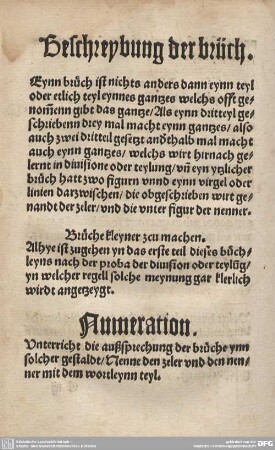 Beschreybung der brüch.
Eynn brüch ist nichts anders dann eynn teyl
oder etlich teyl eynnes gantzes welchs offt ge-
nom̃enn gibt das gantze/Als eynn dritteyl ge-
schriebenn drey mal macht eynn gantzes/also
auch zwei dritteil gesetzt andthalb mal macht
auch eynn gantzes/welchs wirt hirnach ge-
lernt in diuisione oder teylung/vñ eyn ytzlicher
brüch hatt zwo figurn vnnd eynn virgel oder
linien darzwischen/die obgeschrieben wirt ge-
nandt der zeler/vnd die vnter figur der nenner.
Brüche kleyner zcu machen.
Alhye ist zugehen yn das erste teil dieses büch-
leyns nach der proba der diuision oder teylũg/
yn welcher regell solche meynung gar klerlich
wirdt angetzeygt.
Numeration.
Vnterricht die außsprechung der brüche ynn
solcher gestaldt/Nenne den zeler vnd den nen-
ner mit dem wortleynn teyl.